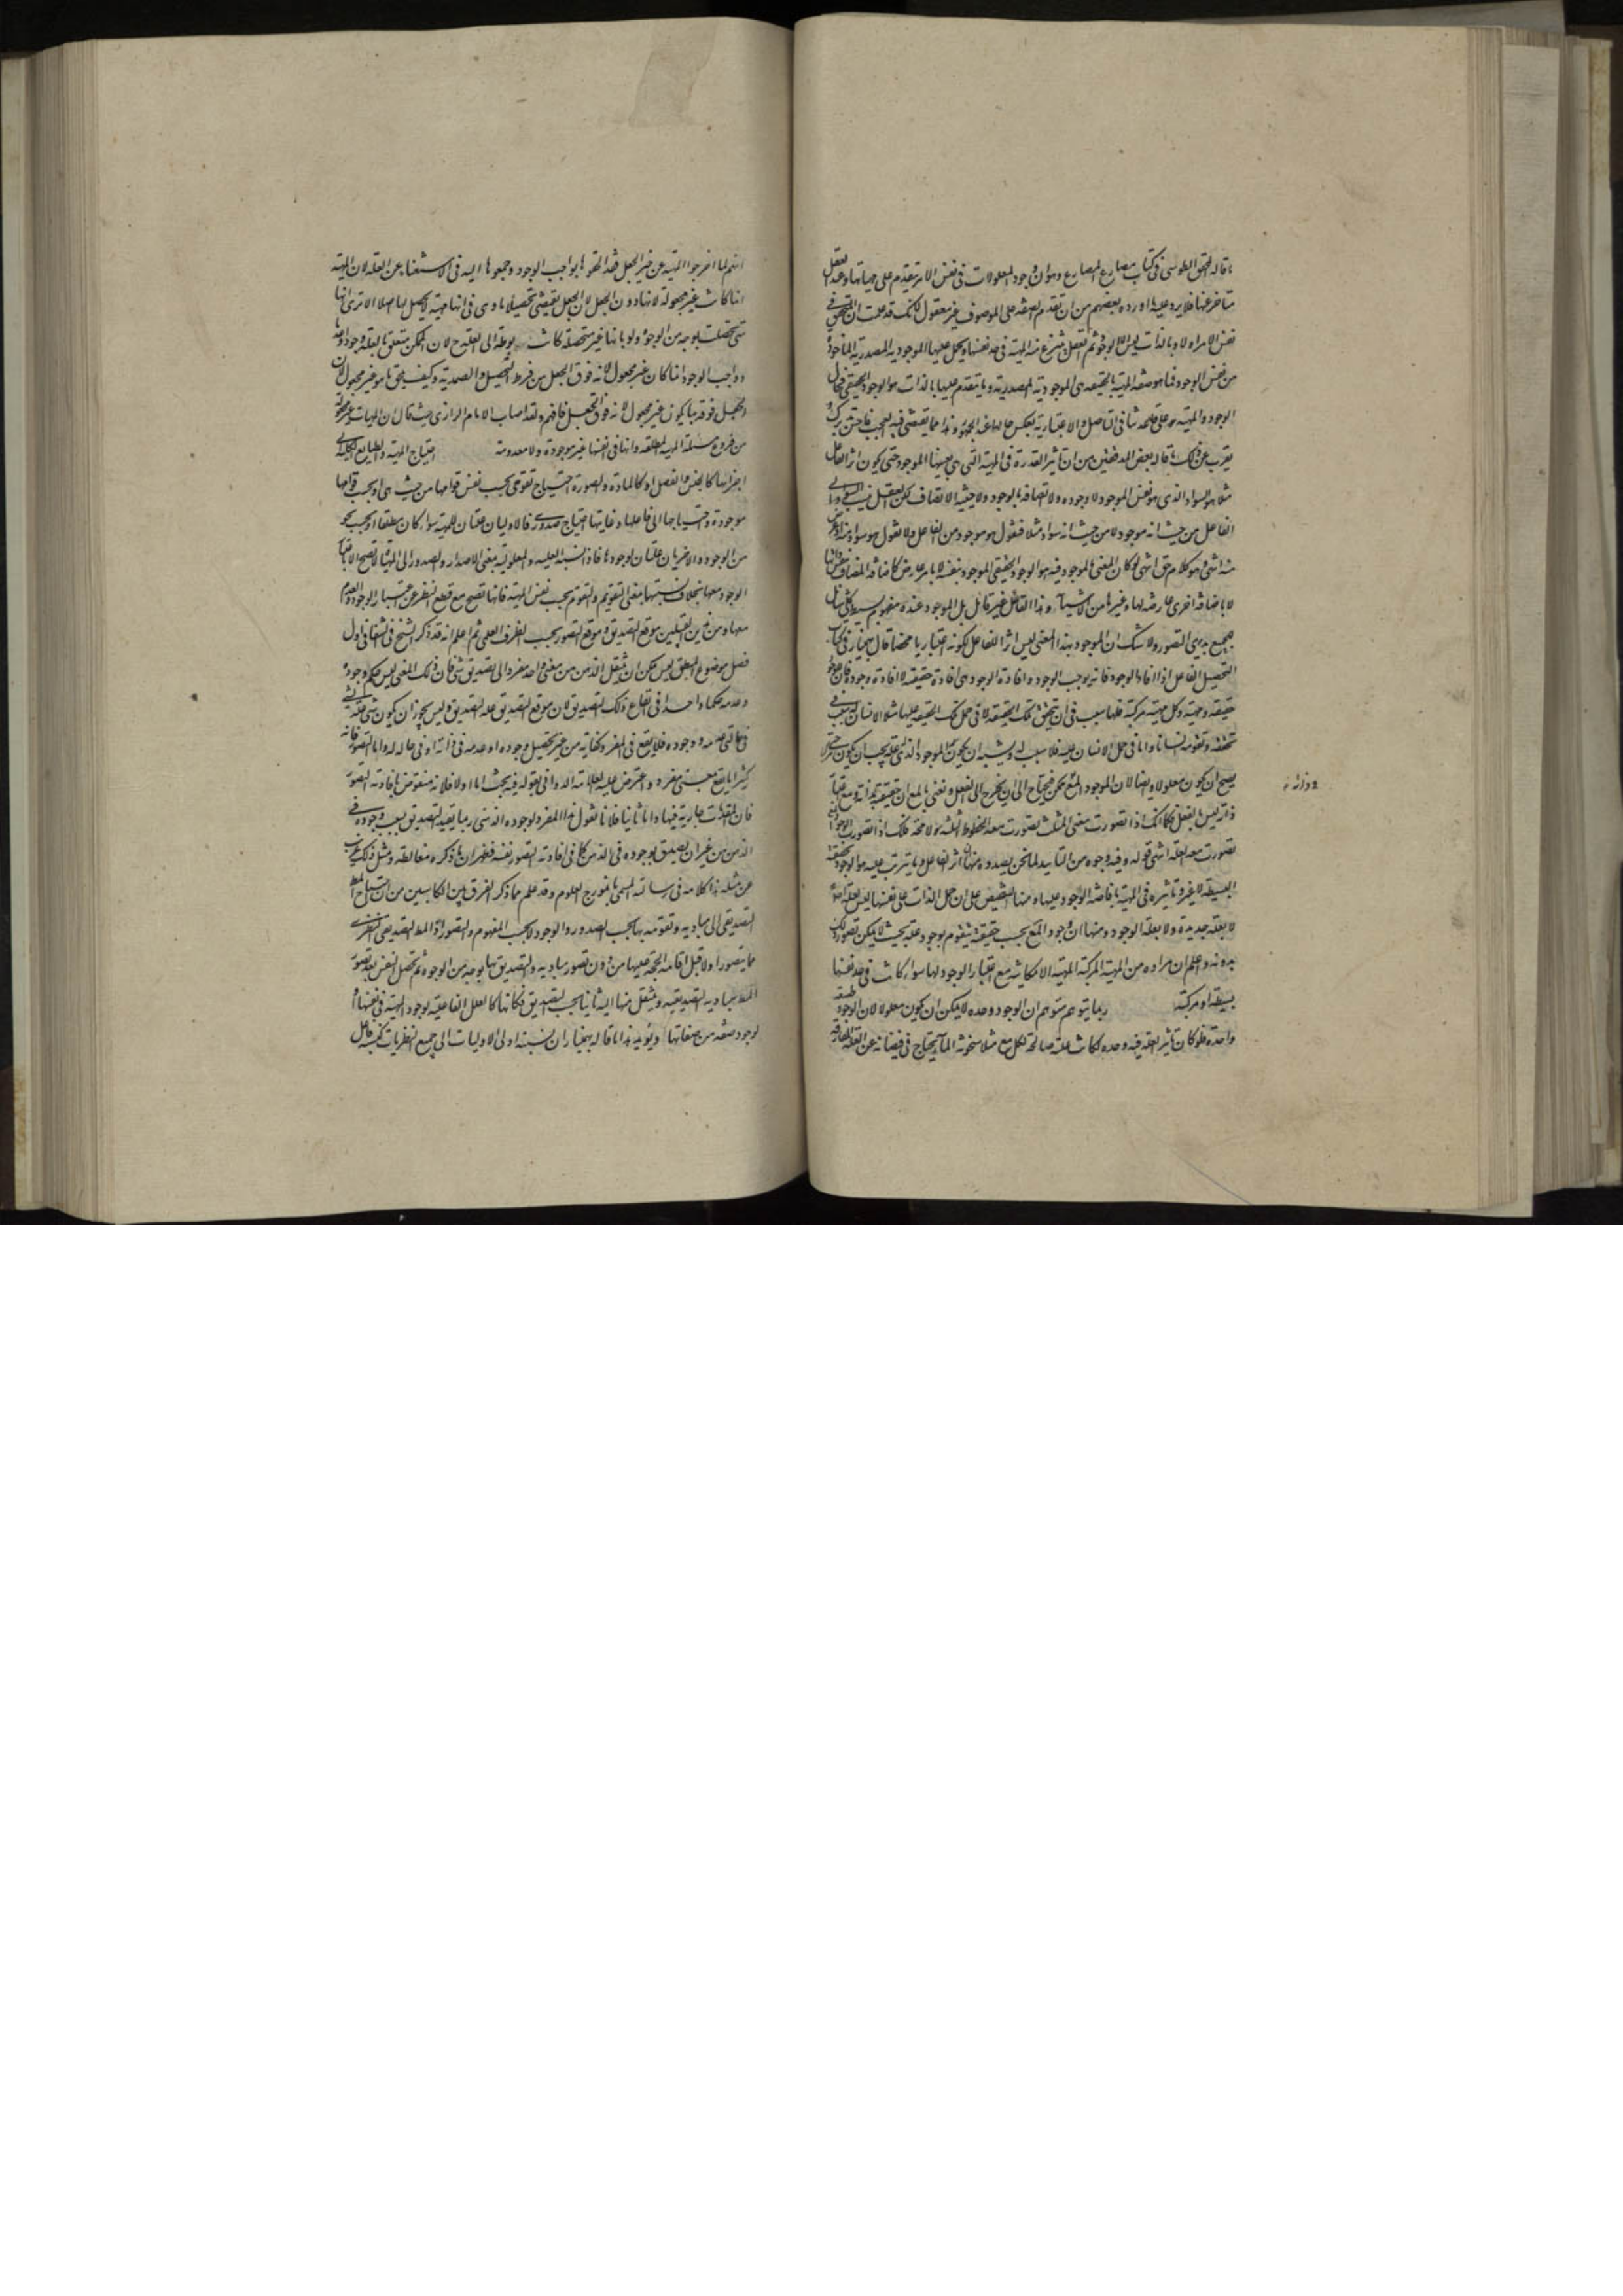 ما قاله المحقق الطوسى فى كتاب مصارع المصارع وهو ان وجود المعلولات فى نفس الامر متقدم على مهياتها وعند العقل
متاخر عنها فلا يرد عليه ما اورده بعضهم من ان تقدم الصفه على الموصوف غير معقول لانك قد علمت ان المتحقق فى
نفس الامر اولا وبالذات ليس الا الوجود ثم العقل ينتزع منه المهية فى حد نفسها ويحمل عليها الموجوديه المصدريه الماخوذه
من نفس الوجود فما هو صفه المهية بالحقيقه هى الموجوديه المصدريه وما يتقدم عليها بالذات هو الوجود الحقيقى فحال
الوجود والمهية على قاعدتنا فى التاصل والاعتباريه بعكس حالهما عند الجمهور وهذا مما يقضى فيه العجب فاحسن تدبرك
يقرب عن ذلك ما قاله بعض المدققين من ان تاثير القدرة فى المهية التى هى بعينها الموجود حتى يكون اثر الفاعل
مثلا هو السواد الذى هو نفس الموجود لا وجوده ولا اتصافه بالوجود ولا حيثية الاتصاف لكن العقل ينسب السواد الى
الفاعل من حيث انه موجود لا من حيث انه سواد مثلا فنقول هو موجود من الفاعل ولا نقول هو سواد منه او عرض
منه انتهى وهو كلام حق انتهى لو كان المعنى بالموجود فيه هو الوجود الحقيقى الموجود بنفسه لا بامر عارض كاضافه المضاف بنفسها
لا باضافه اخرى عارضه لها وغيرها من الاشيآء وهذا القائل غير قائل بل الموجود عنده مفهوم بسيط كلى شامل
لجميع بديهى التصور ولا شك ان الموجود بهذا المعنى ليس اثرا للفاعل لكونه اعتباريا محضا قال بهمنيار فى كتاب
التحصيل الفاعل اذا افاد الوجود فانه يوجب الوجود وافادة الوجود هى افادة حقيقته لا افادة وجوده فان للوجود
حقيقه ومهية وكل مهية مركبه فلها سبب فى ان تتحقق تلك الحقيقه لا فى حمل تلك الحقيقه عليها مثلا الانسان له سبب فى
تحققه وتقومه انسانا واما فى حمل الانسان عليه فلا سبب له ويشبه ان يكون الموجود الذى له علة يجب ان يكون مركبا حتى
يصح ان يكون معلولا وايضا لان الموجود المع ممكن فيحتاج الى ان يخرج الى الفعل ونعنى بالمع ان حقيقته بذاته ومع اعتبار
ذاته ليس بالفعل فكما انك اذا تصورت معنى المثلث تصورت معه الخطوط الثلثه لا محه فكذلك اذا تصورت الوجود المع
تصورت معه العله انتهى قوله وفيه وجوه من التاييد لما نحن بصدده منها ان اثر الفاعل وما يترتب عليه هو الوجود بحقيقته
البسيطه لا غير وتاثيره فى المهية بافاضة الوجود عليها ومنها التنصيص على ان حمل الذات على نفسها ليس بعلة اصلا
لا بعلة جديدة ولا بعلة الوجود ومنها ان وجود المع بحسب حقيقته متقوم بوجود علته بحيث لا يمكن تصوره
بدونه واعلم ان مراده من المهية المركبه المهية الامكانيه مع اعتبار الوجود لها سواء كانت فى حد نفسها
بسيطه او مركبه ربما يتوهم متوهم ان الوجود وحده لا يمكن ان يكون معلولا لان الوجود طبيعه
واحدة فلو كان تاثير العله فيه وحده لكانت علته صالحه لكل مع مثلا سخونة المآء يحتاج فى فيضانه عن العله المفارقه
انتم لما اخرجوا المهية عن حيز الجعل فقد الحقوها بواجب الوجود وجمعوها اليه فى الاستغناء عن العله لان المهية
انما كانت غير مجعولة لانها دون الجعل لان الجعل يقتضى تحصيلا ما وهى فى انها مهية لا تحصل لها اصلا الا ترى انها
متى تحصلت بوجه من الوجوه ولو بانها غير متحصلة كانت مربوطه الى العله ح لان الممكن متعلق بالعله وجودا وعدما
وواجب الوجود انما كان غير مجعول لانه فوق الجعل من فرط التحصل والصمديه وكيف يلحق ما هو غير مجعول لان
الجعل فوقه بما يكون غير مجعول لانه فوق الجعل فافهم ولقد اصاب الامام الرازى حيث قال ان المهيات غير مجعولة
من فروع مسئلة المهية المطلقه وانها فى انفسها غير موجودة ولا معدومه احتياج المهية والطبايع الكليه الى
اجزائها كالجنس والفصل او كالمادة والصورة احتياج تقومى بحسب نفس قوامها من حيث هى او بحسب قوامها
موجودة واحتياجها الى فاعلها وغايتها احتياج صدورى فالاوليان علتان للمهية سواء كان مطلقا او بحسب نحو
من الوجود والاخريان علتان لوجودها فاذن نسبة العلية والمعلوليه بمعنى الاصدار والصدور الى المهية لا تصح الا باعتبار
الوجود معها بخلاف نسبتها بمعنى التقويم والتقوم بحسب نفس المهية فانها تصح مع قطع النظر عن اعتبار الوجود والعدم
معها ومن هذين القبيلين موقع التصديق وموقع التصور بحسب الظرف العلمى ثم اعلم انه قد ذكر الشيخ فى الشفا فى اول
فصل موضوع المنطق ليس يمكن ان ينتقل الذهن من معنى واحد مفرد الى تصديق شئ فان ذلك المعنى ليس حكم وجوده
وعدمه حكما واحدا فى ايقاع ذلك التصديق لان موقع التصديق علة التصديق وليس يجوز ان يكون شئ علة لشئ
فى حالتى عدمه ووجوده فلا يقع فى المفرد كفاية من غير تحصيل وجوده او عدمه فى ذاته او فى حاله له واما التصور فانه
كثيرا ما يقع بمعنى مفرد واعترض عليه العلامه الدوانى بقوله فيه بحث اما اولا فلانه منقوض بافادته التصور
فان المقدمات جارية فيها واما ثانيا فلانا نقول هذا المفرد لوجوده الذهنى ربما يفيد التصديق بسبب وجوده فى
الذهن من غير ان يصدق بوجوده فى الذهن كما فى افادته التصور نفسه فظهر ان ما ذكره مغالطه ومثل ذلك غريب
عن مثله هذا كلامه فى رسالته المسمى بانموذج العلوم وقد علم مما ذكر الفرق بين الكاسبين من ان احتياج المط
التصديقى الى مباديه وتقومه بها بحسب الصدور والوجود لا بحسب المفهوم والتصور اذ المط التصديقى النظرى
مما يتصور اولا قبل اقامه الحجة عليها من دون تصور مباديه والتصديق بها بوجه من الوجوه ثم تحصل النفس بعد تصور
المط مباديه التصديقيه وينتقل منها اليه ثانيا بحسب التصديق فكانها كالعلل الفاعليه لوجود المهية فى نفسها او
لوجود صفه من صفاتها ويؤيد هذا ما قاله بهمنيار ان نسبة اولى الاوليات الى جميع النظريات كنسبة فاعل